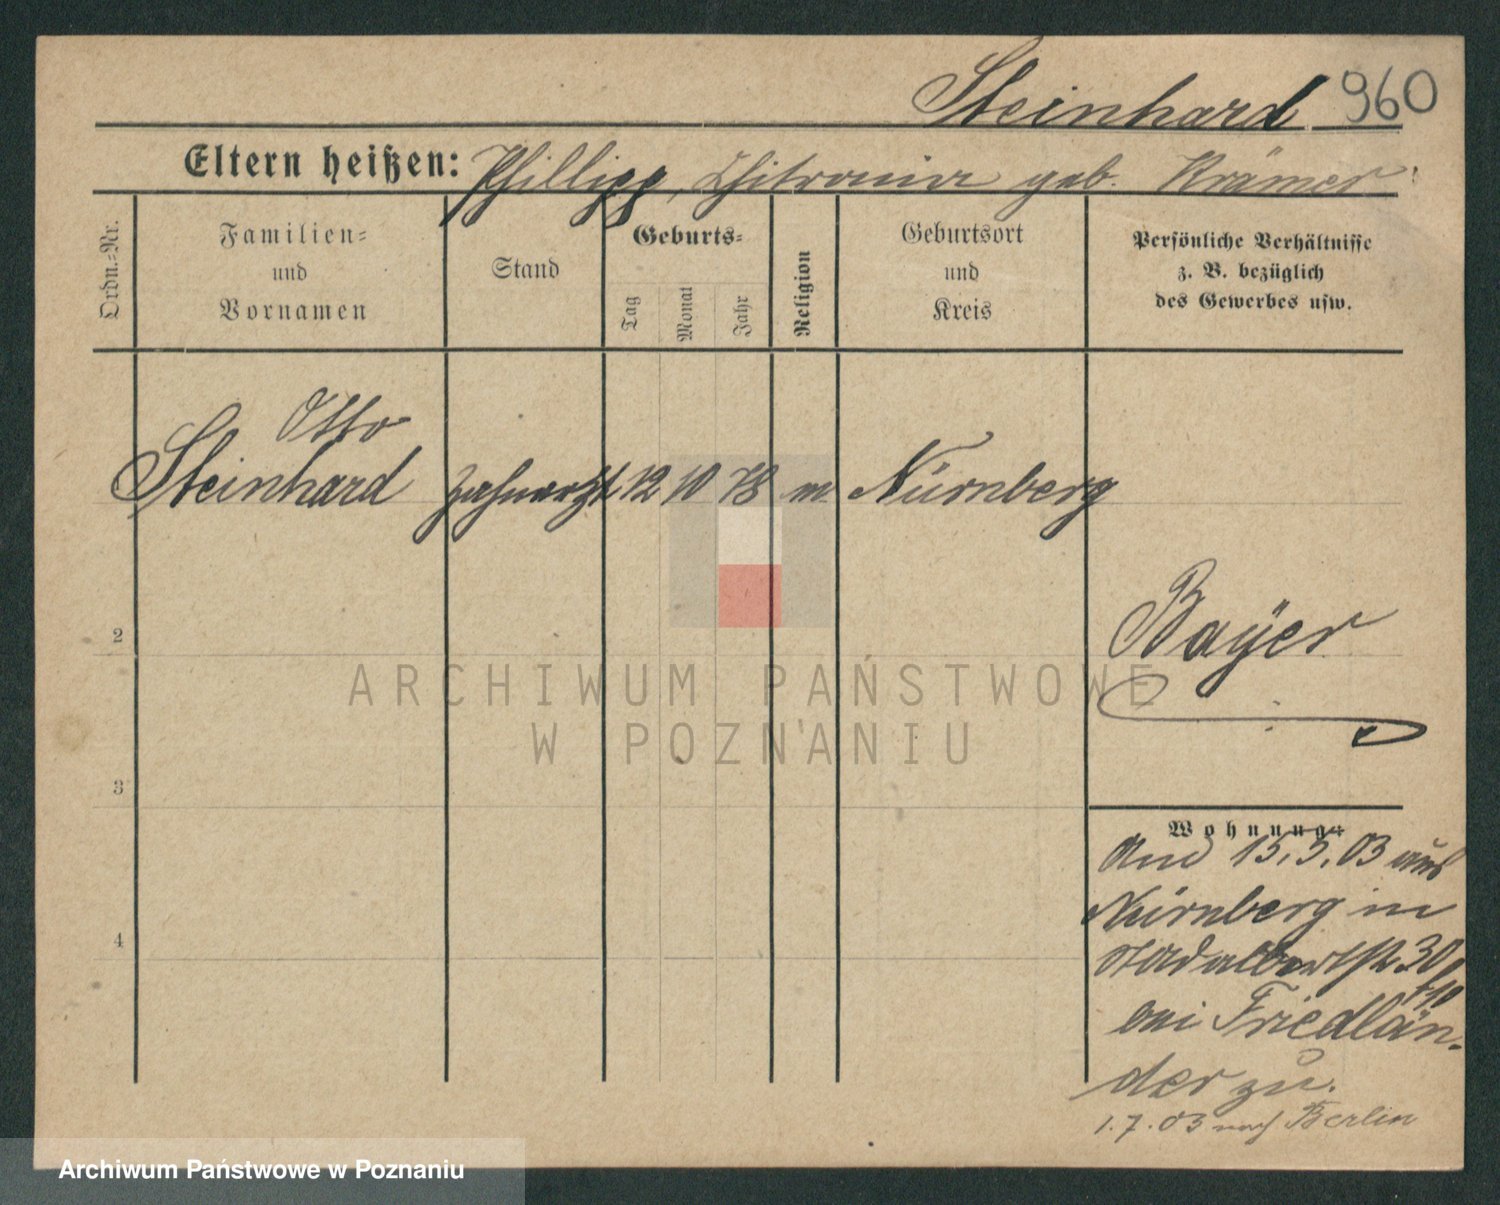 Steinhard 960
Eltern heißen: Phillipp, geb. Krämer
Ordn.-Nr.
Familien-
und
Vornamen
Stand
Geburts-
Tag
Monat
Jahr
Religion
Geburtsort
und
Kreis
Persönliche Verhältnisse
z. B. bezüglich
des Gewerbes usw.
Otto
Steinhard Zahnarzt 12 10 78 m Nürnberg
Bayer
2
3
4
Wohnung:
15.5.03 aus
Nürnberg in
30
bei Friedlän-
der zu.
1.7.03 nach Berlin
ARCHIWUM PAŃSTWOWE
W POZNANIU
Archiwum Państwowe w Poznaniu